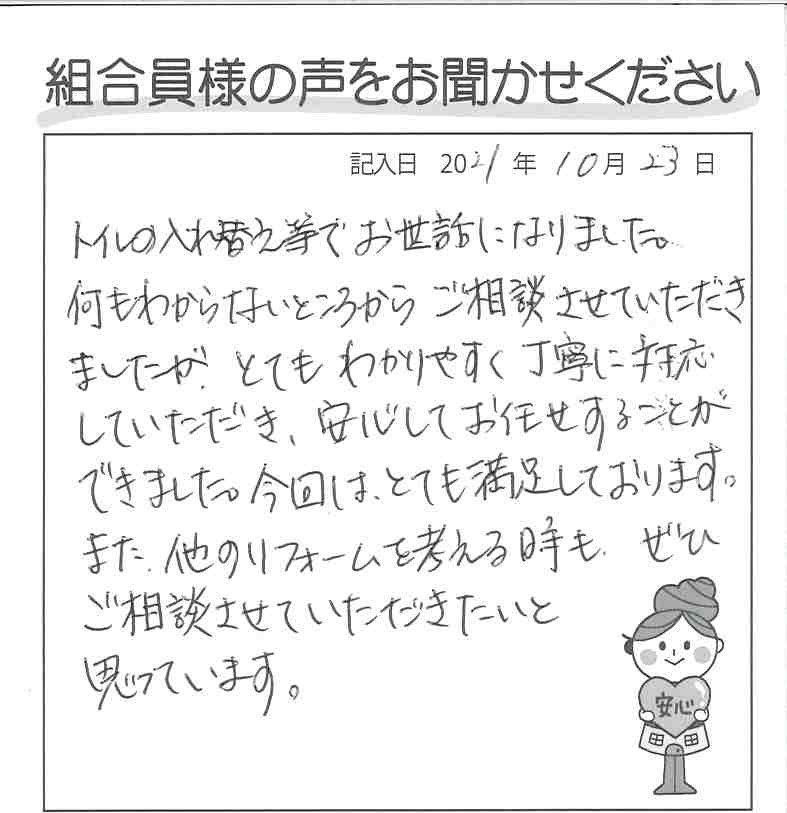 組合員様の声をお聞かせください
記入日 2021年 10月 23日
トイレの入れ替え等でお世話になりました。
何もわからないところから ご相談させていただき
ましたが、とても わかりやすく 丁寧に 対応
していただき、安心して お任せすることが
できました。今回は、とても満足しております。
また、他のリフォームを考える時も、ぜひ
ご相談させていただきたいと
思っています。
安心